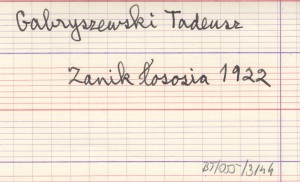 Gabryszewski Tadeusz
Zanik łososia 1922